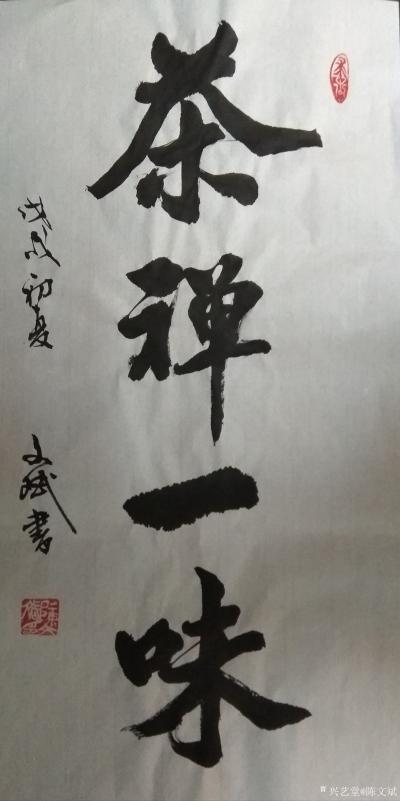 茶禅一味
戊戌初夏
文斌書
兴艺堂@陈文斌